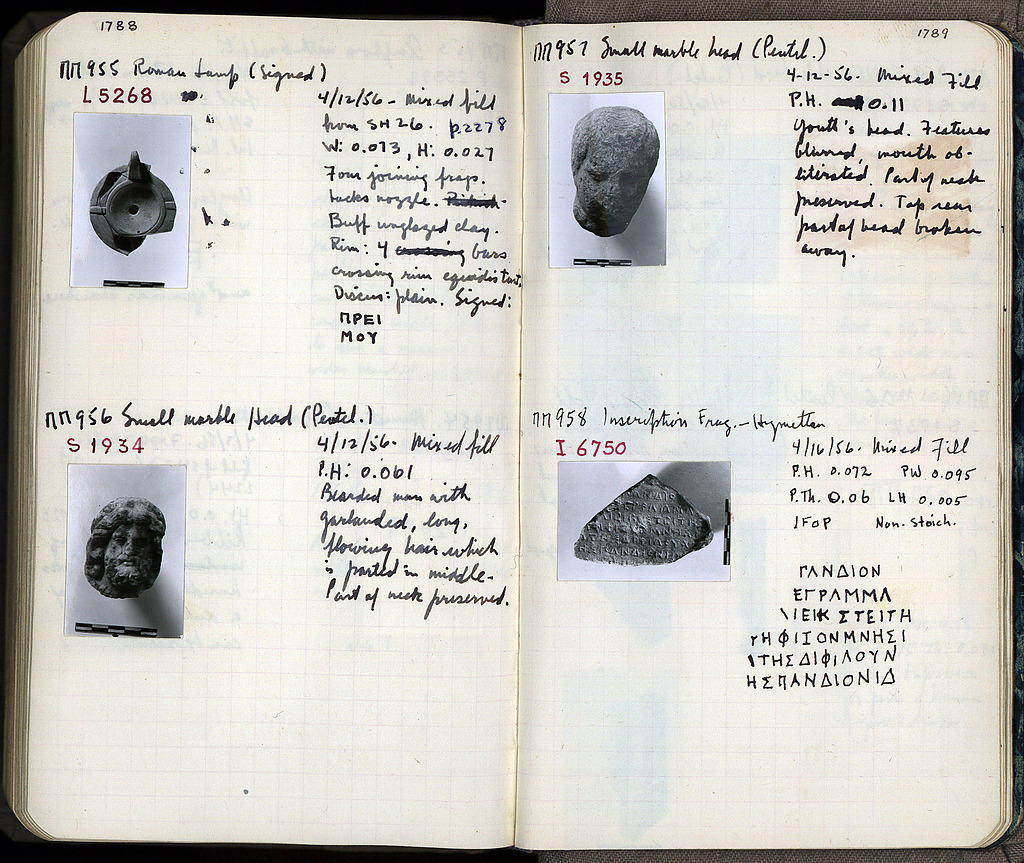 1788
ΠΠ 955 Roman Lamp (Signed)
L 5268
4/12/56 - Mixed fill
from SH 26. p.2278
W: 0.073, H: 0.027
Four joining frags.
Lacks nozzle.
Buff unglazed clay.
Rim: 4 crossing bars
crossing rim equidistant.
Discus: plain. Signed:
ΠΡΕΙ
ΜΟΥ
ΠΠ 956 Small marble Head (Pentel.)
S 1934
4/12/56 - Mixed fill
P.H: 0.061
Bearded man with
garlanded, long,
flowing hair which
is parted in middle.
Part of neck preserved.
1789
ΠΠ 957 Small marble head (Pentel.)
S 1935
4-12-56. Mixed Fill
P.H. 0.11
Youth's head. Features
blurred, mouth ob-
literated. Part of neck
preserved. Top rear
part of head broken
away.
ΠΠ 958 Inscription Frag. - Hymettan
I 6750
4/16/56. Mixed Fill
P.H. 0.072 PW 0.095
P.Th. 0.06 LH 0.005
1FOP Non-Stoich.
ΓΑΝΔΙΟΝ
ΕΓΡΑΜΜΑ
\ΙΕΙΚ ΣΤΕΙΤΗ
ΤΗΦΙΣΟΝΜΝΗΣΙ
\ΤΗΣΔΙΦΙΛΟΥΝ
ΗΣΠΑΝΔΙΟΝΙΔ